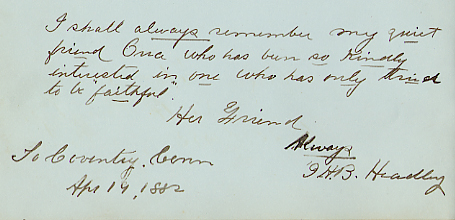 I shall always remember my quiet
friend Once who has been so kindly
interested in one who has only tried
to be faithful."
Her Friend
Always
So Coventry. Conn
Apr 19, 1882
J. H. B. Headley